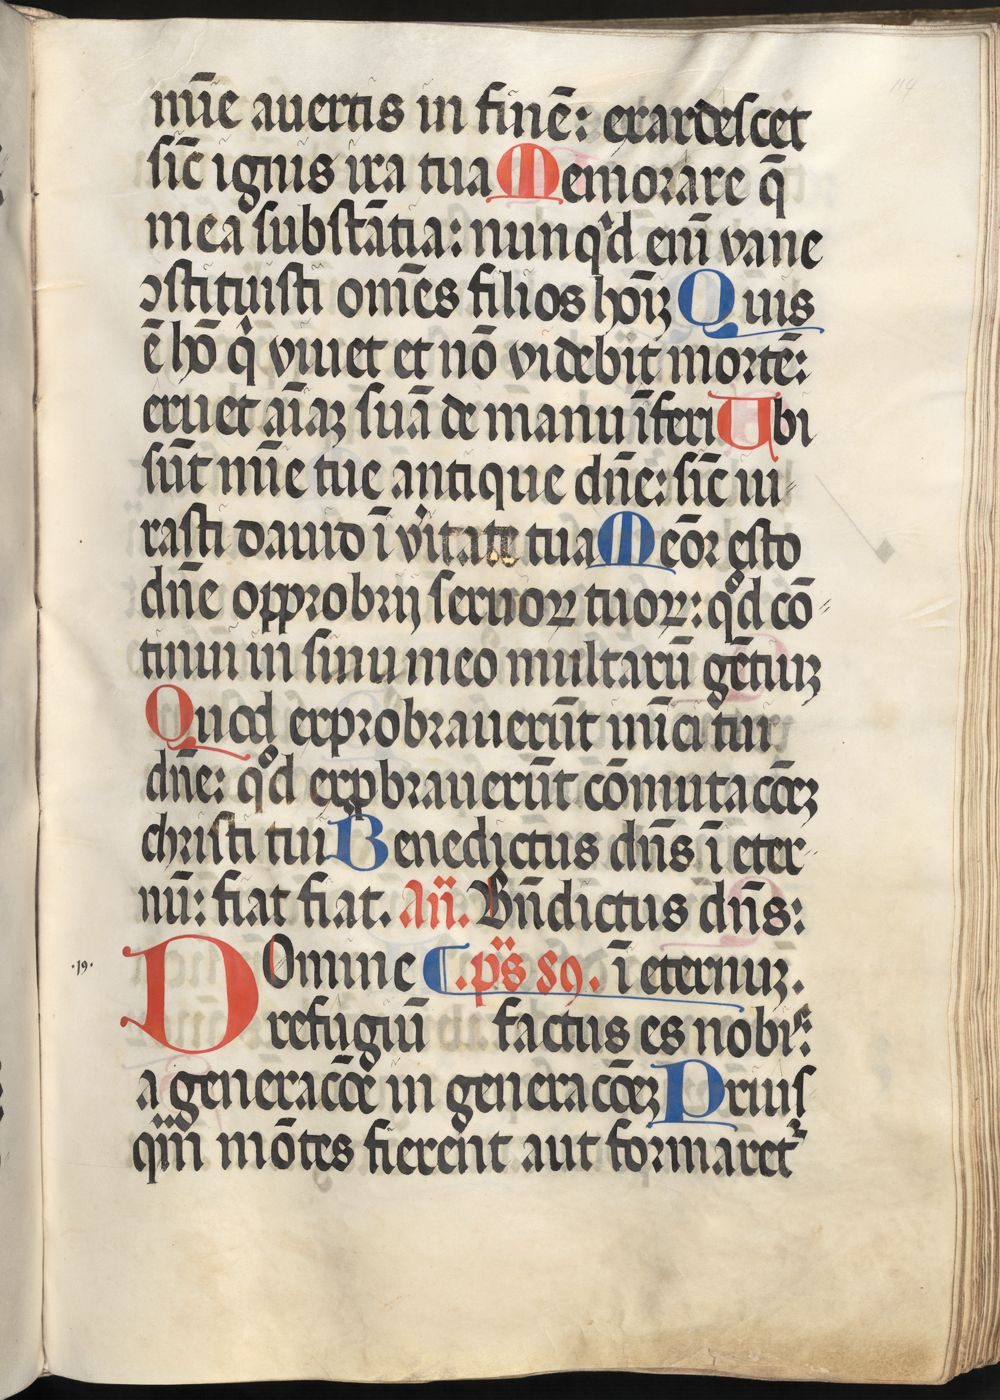 mīe auertis in finē: exardescet
sic̄ ignis ira tua Memorare q̄
mea substātia: nunqͥd enī vane
ꝯstituisti om̄es filios hoīꝫ Quis
ē hō qͥ viuet et nō videbit mortē:
eruet aīaꝫ suā de manu īferi Ubi
sūt mīe tue antique dn̄e: sic̄ iu⸗
rasti dauid ī vͥitate tua Meōr esto
dn̄e opprobrij seruoꝝ tuoꝝ: qͦd cō⸗
tinui in sinu meo multarū gētiuꝫ
Quod exprobrauerūt inīci tui
dn̄e: qͦd exꝓbrauerūt cōmutacōꝫ
christi tui Benedictus dn̄s ī eter⸗
nū: fiat fiat. An̄. Bn̄dictus dn̄s:
DOmine ¶.ps̄ 89. ī eternuꝫ.
refugiū factus es nobis:
a generacōe in generacōeꝫ Prius
qᷓm mōtes fierent aut formaretᷣ
·19·
114